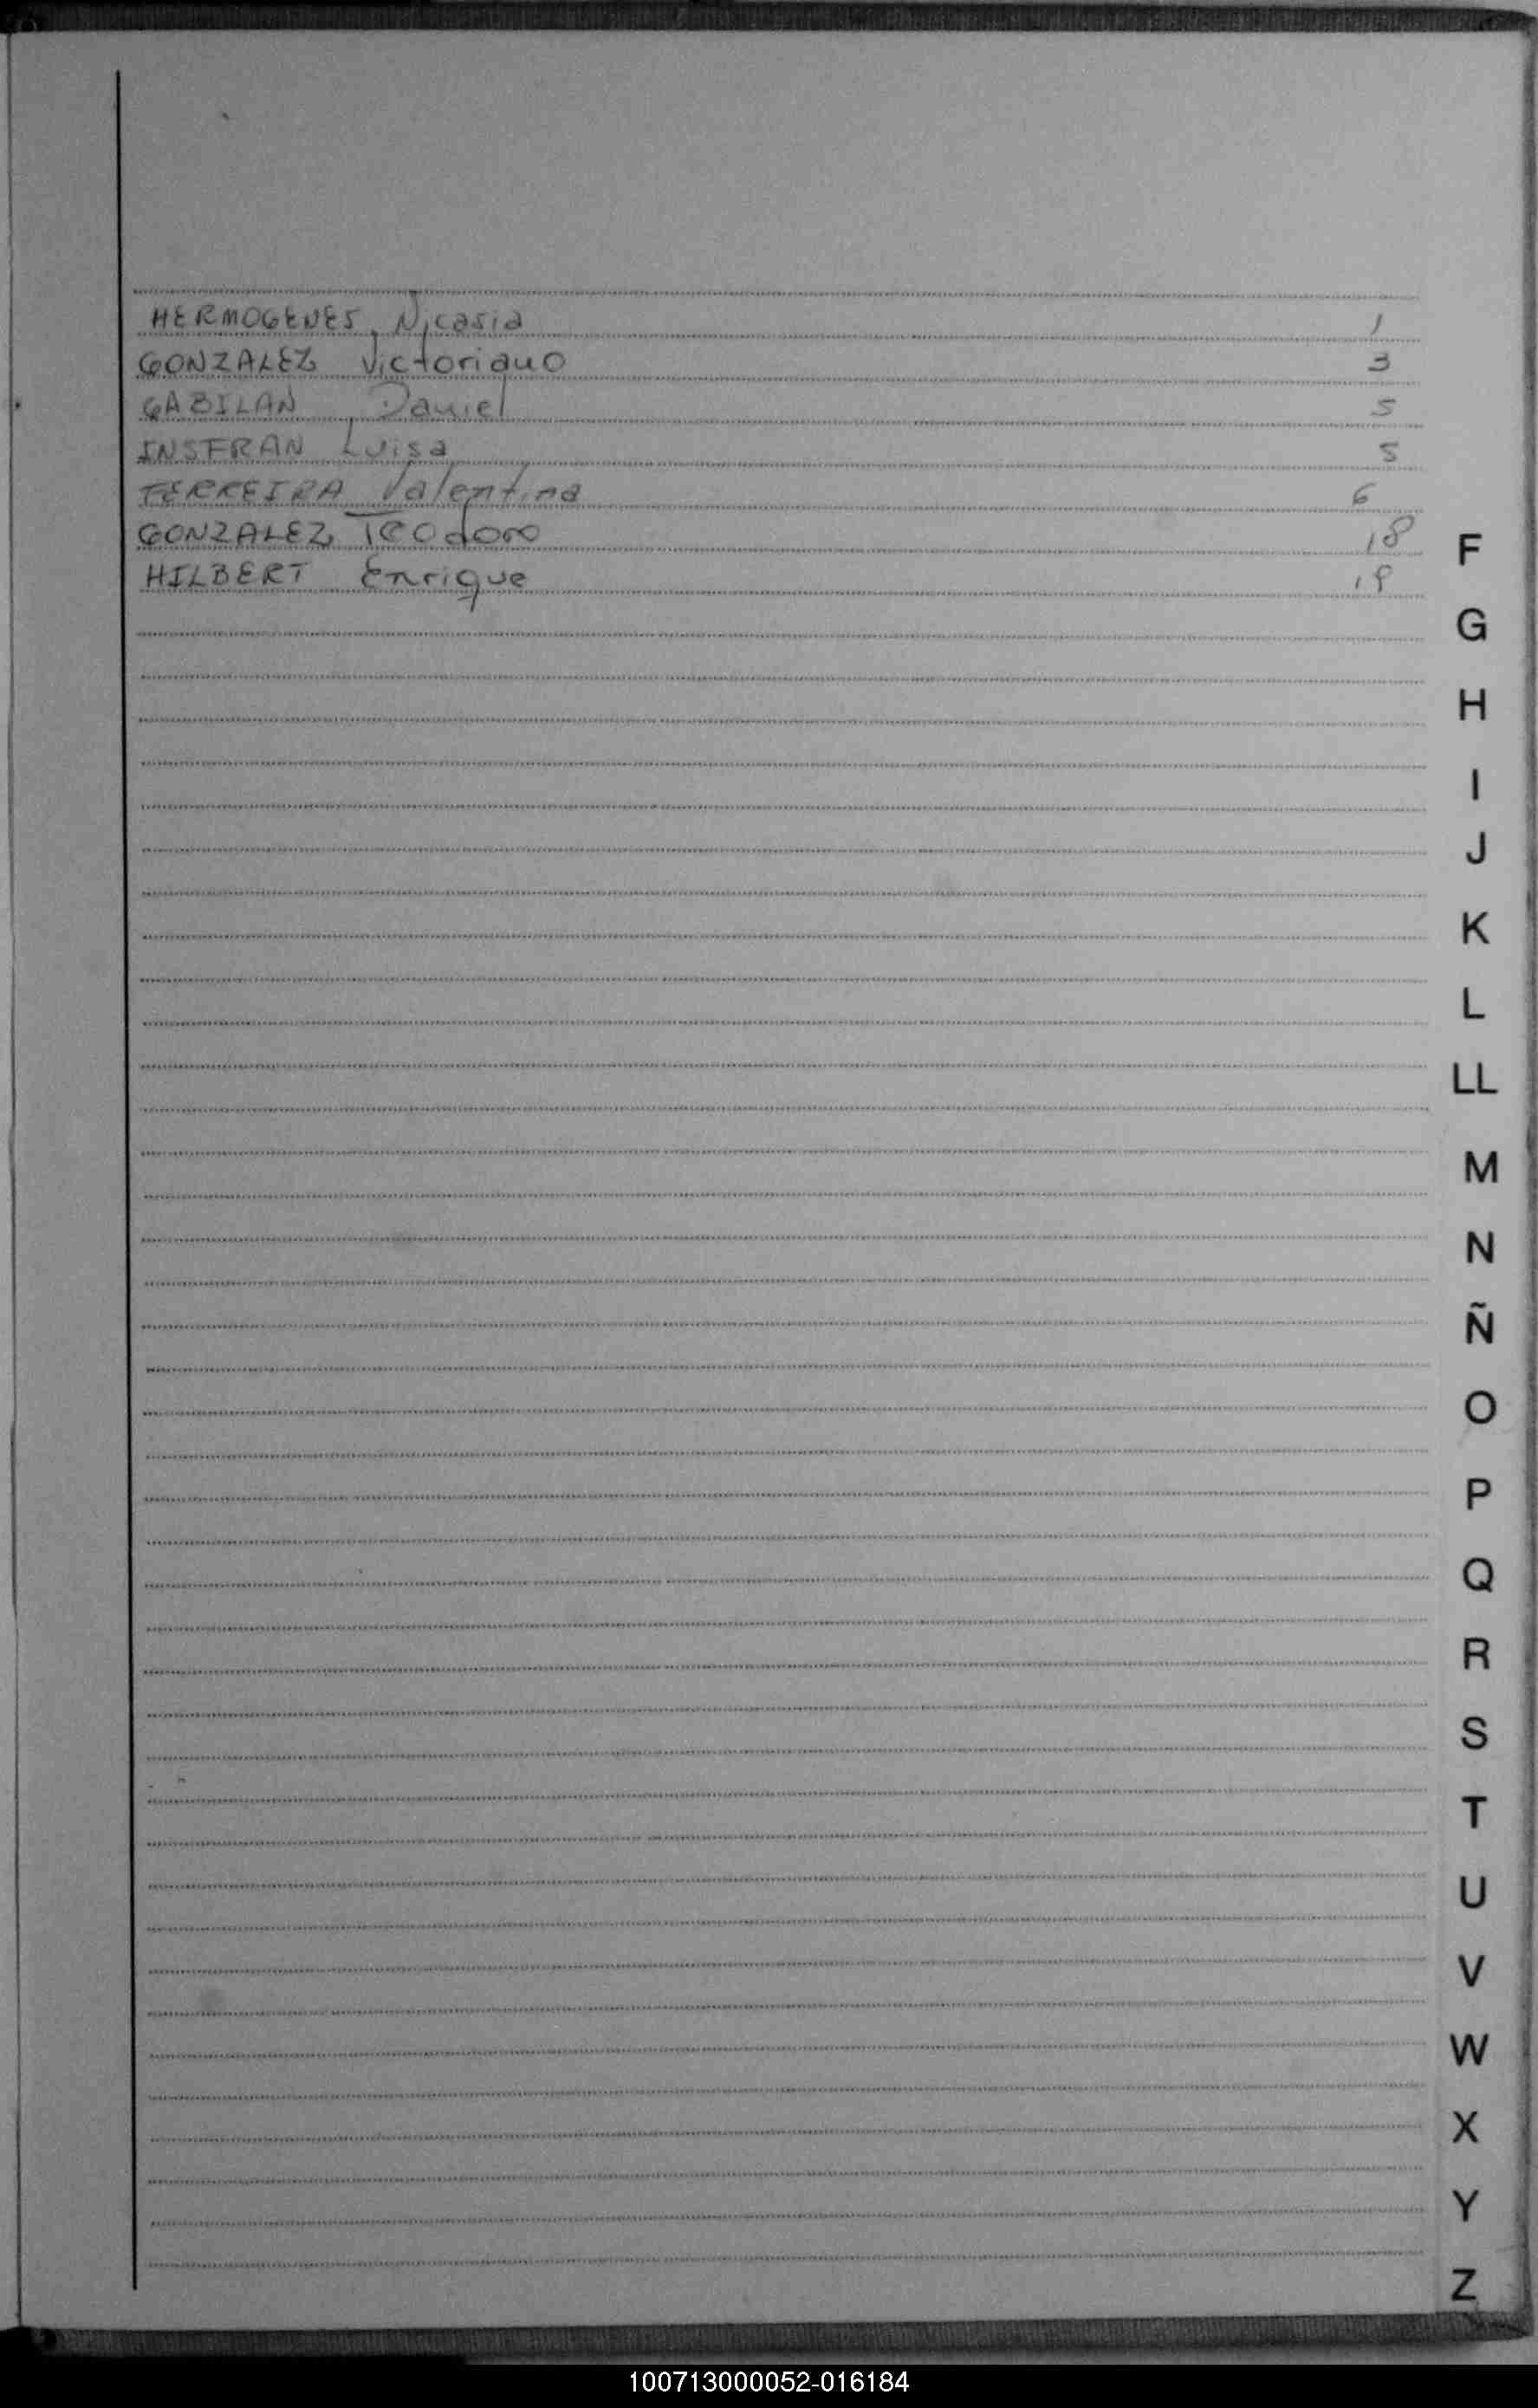 HERMOGENES, Nicasia 1
GONZALEZ Victoriano 3
GABILAN, Daniel 5
INSFRAN Luisa 5
FERREIRA Valentina 6
GONZALEZ Teodoro 18
HILBERT Enrique 19
F
G
H
I
J
K
L
LL
M
N
Ñ
O
P
Q
R
S
T
U
V
W
X
Y
Z
100713000052-016184